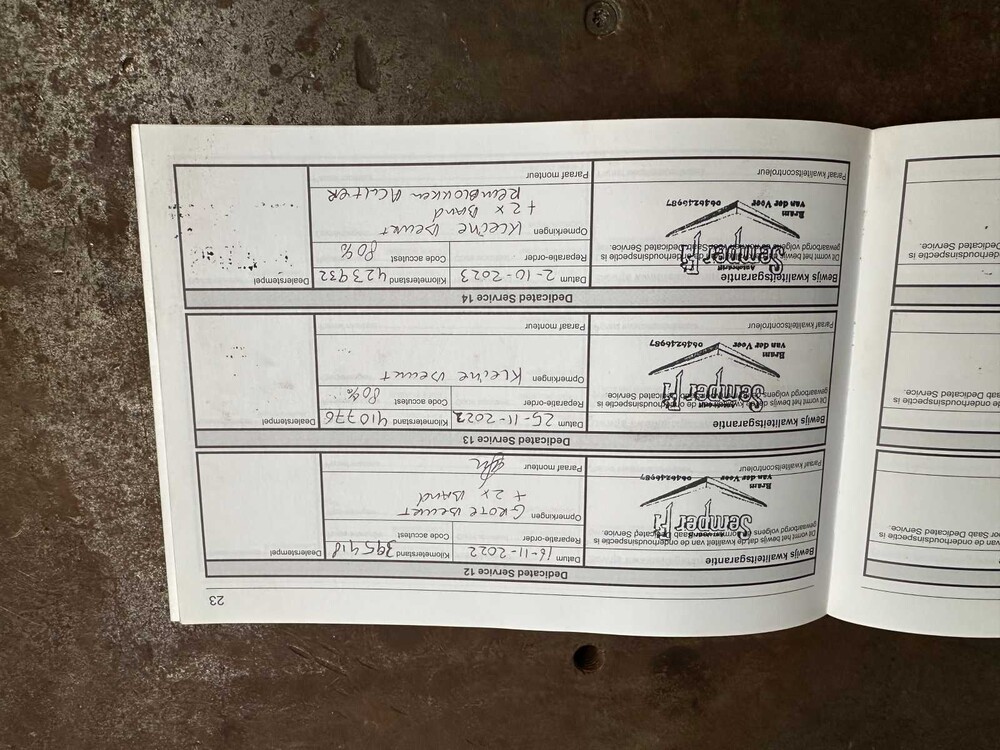 23
Dedicated Service 12
Bewijs kwaliteitsgarantie
Dit vormt het bewijs dat de kwaliteit van de onderhoudsinspectie is
gewaarborgd volgens Saab Dedicated Service.
Semper Fi
Bram
van der Veer 0646246987
Datum 16-11-2022
Kilometerstand 395418
Reparatie-order
Code accutest
Opmerkingen GROTE BEURT
+ 2 x BAND
Paraaf monteur
Dealerstempel
Dedicated Service 13
Bewijs kwaliteitsgarantie
Dit vormt het bewijs dat de kwaliteit van de onderhoudsinspectie is
gewaarborgd volgens Saab Dedicated Service
Semper Fi
Bram
van der Veer 0646246987
Paraaf kwaliteitscontroleur
Datum 25-11-2022
Kilometerstand 410776
Reparatie-order
Code accutest 80%
Opmerkingen KLEINE BEURT
Paraaf monteur
Dealerstempel
Dedicated Service 14
Bewijs kwaliteitsgarantie
Dit vormt het bewijs
gewaarborgd volgens Saab Dedicated Service.
Semper Fi
Autobedrijf
Bram
van der Veer 0646246987
Paraaf kwaliteitscontroleur
Datum 2-10-2023
Kilometerstand 423932
Reparatie-order
Code accutest 80%
Opmerkingen KLEINE BEURT
+ 2 x BAND
REMBLOKKEN ACHTER
Paraaf monteur
Dealerstempel
van de onderhoudsinspectie is
Dedicated Service.
de onderhoudsinspectie is
Saab Dedicated Service.
onderhoudsinspectie is
Dedicated Service.